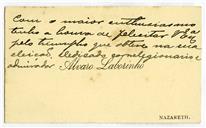 Com o maior enthusiasmo
tenho a honra de felicitar V. Ex.ª
pelo triumpho que obteve na sua
eleição. Dedicado correligionario e
admirador Alvaro Laborinho
NAZARETH.